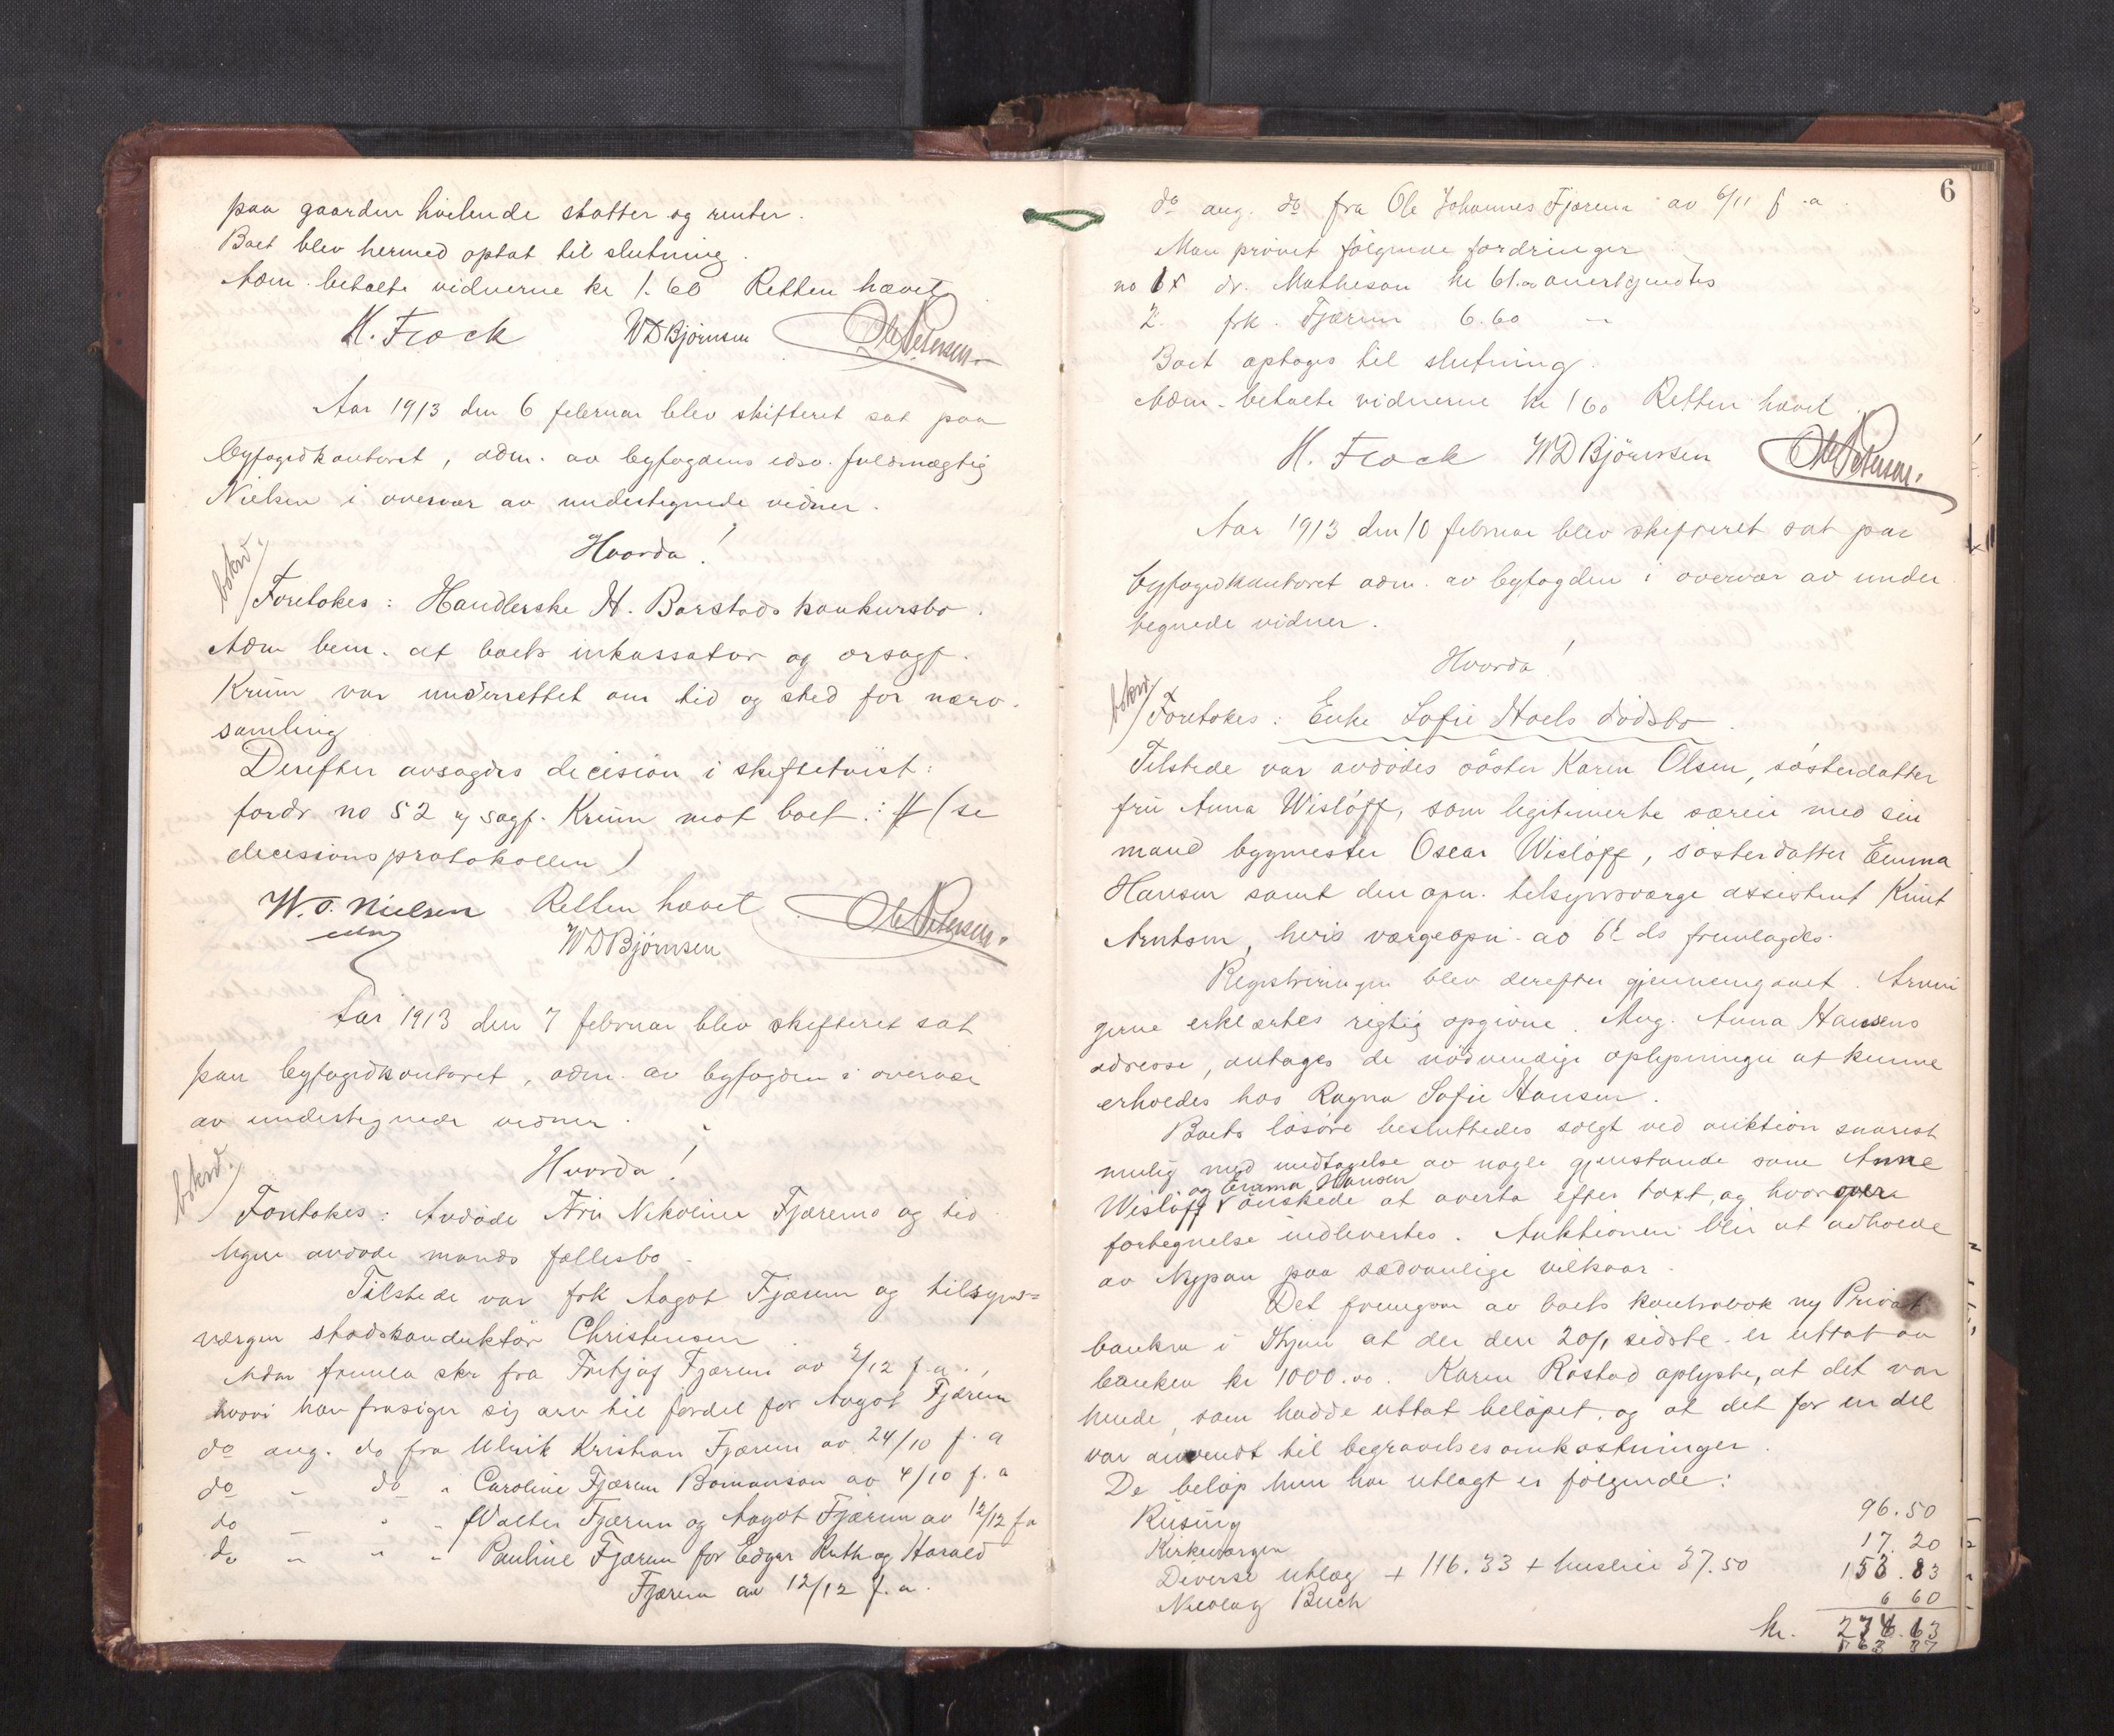 paa gaarden hvilende skatter og renter.
Boet blev hermed optat til slutning.
Adm. betalte vidnerne kr 1.60 Retten hævet
H. Frock WDBjørnsen Ole Petersen
Aar 1913 den 6 februar blev skifteret sat paa
byfogedkontoret, adm. av byfogdens edsv. fuldmægtig
Nielsen i overvær av undertegnede vidner.
Hvorda!
bokw.
Foretokes: Handlerske H. Barstads konkursbo.
Adm bem. at boets inkassator og orsagf.
Krüm var underrettet om tid og sted for nærv.
samling
Derefter avsagdes decision i skiftetvist:
fordr no 52 sagf. Krüm mot boet: # (se
decisionsprotokollen)
W. O. Nielsen Retten hævet Ole Petersen
edsv WDBjörnsen
Aar 1913 den 7 februar blev skifteret sat
paa byfogedkontoret, adm. av byfogden i overvær
av undertegnede vidner.
Hvorda!
bokw.
Foretokes: Avdøde Fru Nikoline Fjærems og tid
ligere avdøde mands fællesbo.
Tilstede var frk Aagot Fjærem og tilsyns=
værgen stadskonduktør Christensen
Adm fremla skr fra Fritjof Fjærem av 2/12 f.a.,
hvori han frasiger sig arv til fordel for Aagot Fjærem
do ang. do fra Ulrik Kristian Fjærem av 24/10 f.a
do - do " Caroline Fjærem Bomanson av 4/10 f.a
do - " " Walter Fjærem og Aagot Fjærem av 12/12 f a
do - " " Pauline Fjærem for Edgar Ruth og Harald
Fjærem av 12/12 f.a.
6
do ang. do fra Ole Johannes Fjærem av 6/11 f.a.
Man prøvet følgende fordringer
no 1 dr. Matheson kr 61.00 anerkjendtes
2. frk. Fjærem 6.60 -
Boet optages til slutning.
Adm. betalte vidnerne kr 1 60 Retten hævet
H. Frock WDBjörnsen Ole Petersen.
Aar 1913 den 10 februar blev skifteret sat paa
byfogedkontoret adm. av byfogden i overvær av under
tegnede vidner.
Hvorda!
bokw.
Foretokes: Enke Sofie Hoels dødsbo.
Tilstede var avdødes søster Karen Olsen, søsterdatter
fru Anna Wisløff, som legitimerte særeie med sin
mand bygmester Oscar Wisløff, søsterdatter Emma
Hansen samt den opn. tilsynsværge assistent Knut
Arntsen, hvis værgeopn. av 6t ds fremlagdes.
Registreringen blev derefter gjennemgaaet. Arvin
gerne erklærtes rigtig opgivne. Ang. Anna Hansens
adresse, antages de nødvendige oplysninger at kunne
erholdes hos Ragna Sofie Hansen.
Boets løsøre besluttedes solgt ved auktion snarest
mulig med undtagelse av nogle gjenstande som Anna
og Emma Hansen
Wisløff ønskede at overta efter taxt, og hvorover
fortegnelse indlevertes. Auktionen blir at avholde
av Nypan paa sædvanlige vilkaar.
Det fremgaar av boets kontrabok Privat
banken i Thjem at der den 20/1 sidste er uttat av
banken kr 1000.00. Karen Röstad oplyste, at det var
hende, som hadde uttat beløpet, og at det for en del
var anvendt til begravelsesomkostninger.
De beløp hun har utlagt er følgende:
Rüsing 96.50
Kirkevergen 17.20
Diverse utlæg + 116.33 + husleie 37.50 153.83
Nicolay Buch 6 60
kr. 274.13